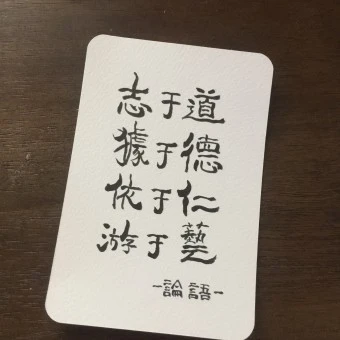 志于道
據于德
依于仁
游于藝
-論語-